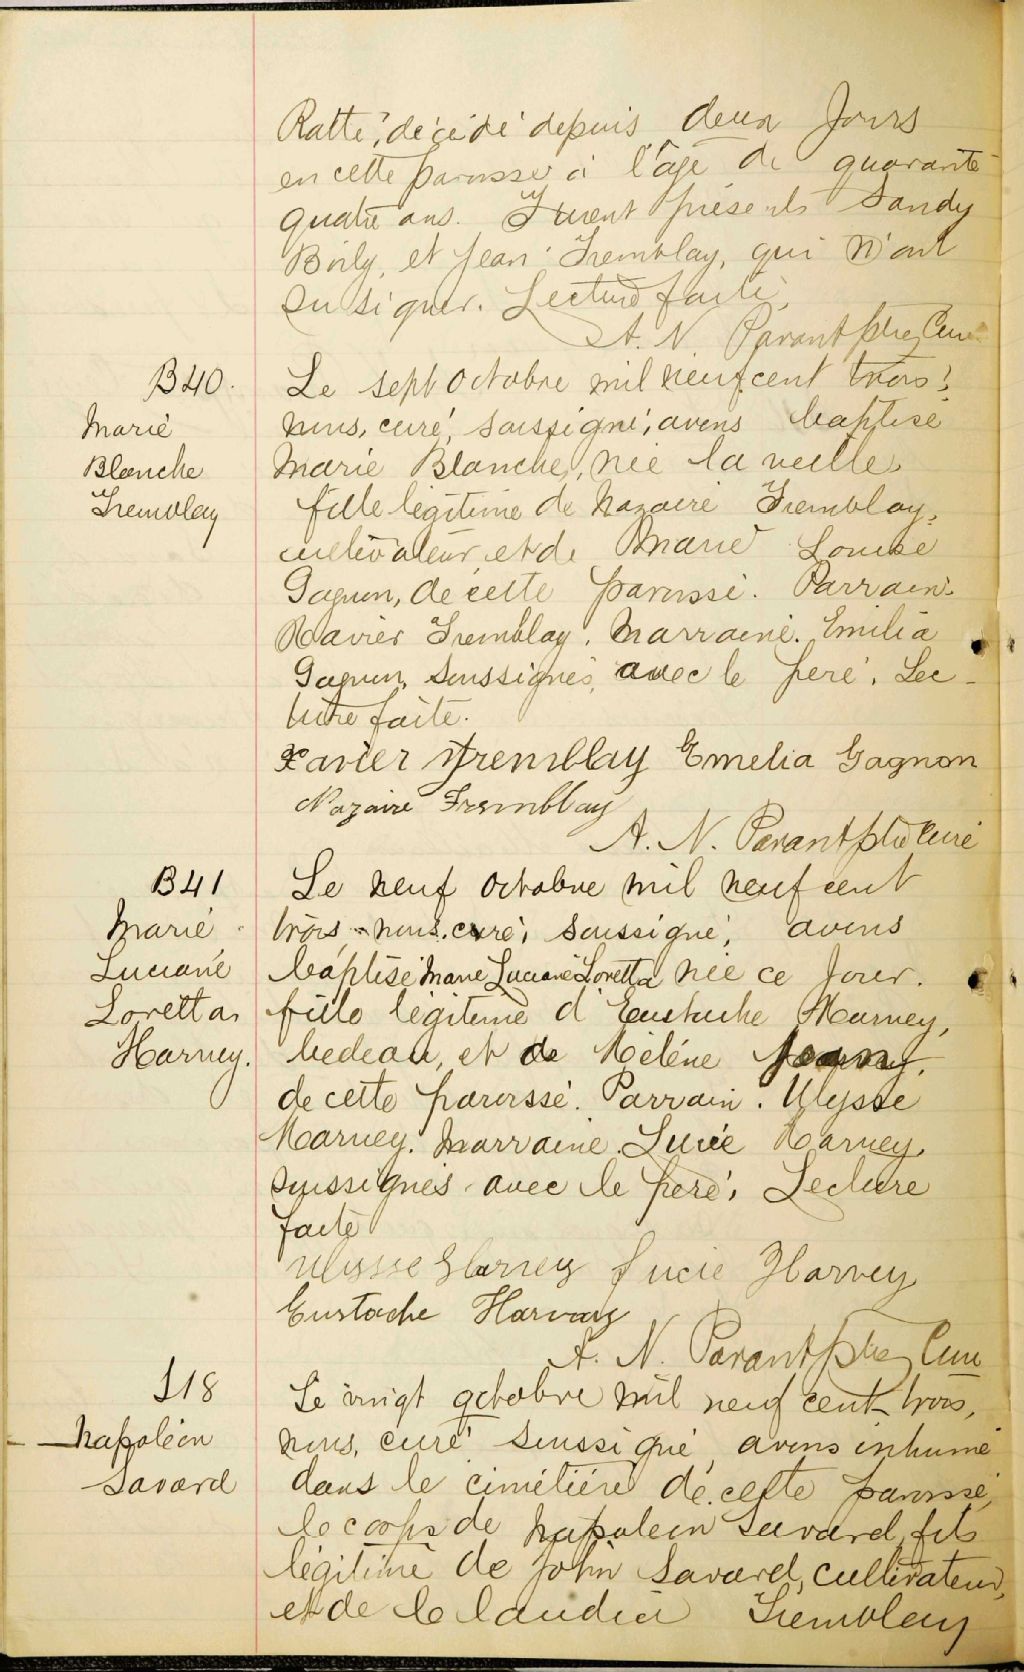 Ratté, décédé depuis deux jours
en cette paroisse à l'âge de quarante-
quatre ans. Furent présents Sandy
Boily, et Jean Tremblay, qui n'ont
su signer. Lecture faite.
A. N. Parant ptre, Curé
B 40.
Marie
Blanche
Tremblay
Le sept octobre mil neuf cent trois,
nous, curé, soussigné, avons baptisé
Marie Blanche, née la veille,
fille légitime de Nazaire Tremblay,
cultivateur, et de Marie Louise
Gagnon, de cette paroisse. Parrain.
Xavier Tremblay. Marraine. Emilia
Gagnon, soussignés, avec le père. Lec-
ture faite.
Xavier Tremblay Emelia Gagnon
Nazaire Tremblay
A. N. Parant ptre Curé
B 41
Marie
Luciane
Loretta
Harvey.
Le neuf octobre mil neuf cent
trois, nous, curé, soussigné, avons
baptisé Marie Luciane Loretta née ce jour.
fille légitime d'Eustache Harvey,
bedeau, et de Hélène
de cette paroisse. Parrain. Ulysse
Harvey. Marraine. Lucie Harvey,
soussignés avec le père. Lecture
faite
Ulysse Harvey Lucie Harvey
Eustache Harvay
A. N. Parant ptre, Curé
S 18
Napoléon
Savard
Le vingt octobre mil neuf cent trois,
nous, curé soussigné, avons inhumé
dans le cimétière de cette paroisse,
le corps de Napoléon Savard, fils
légitime de John Savard, cultivateur,
et de Claudia Tremblay